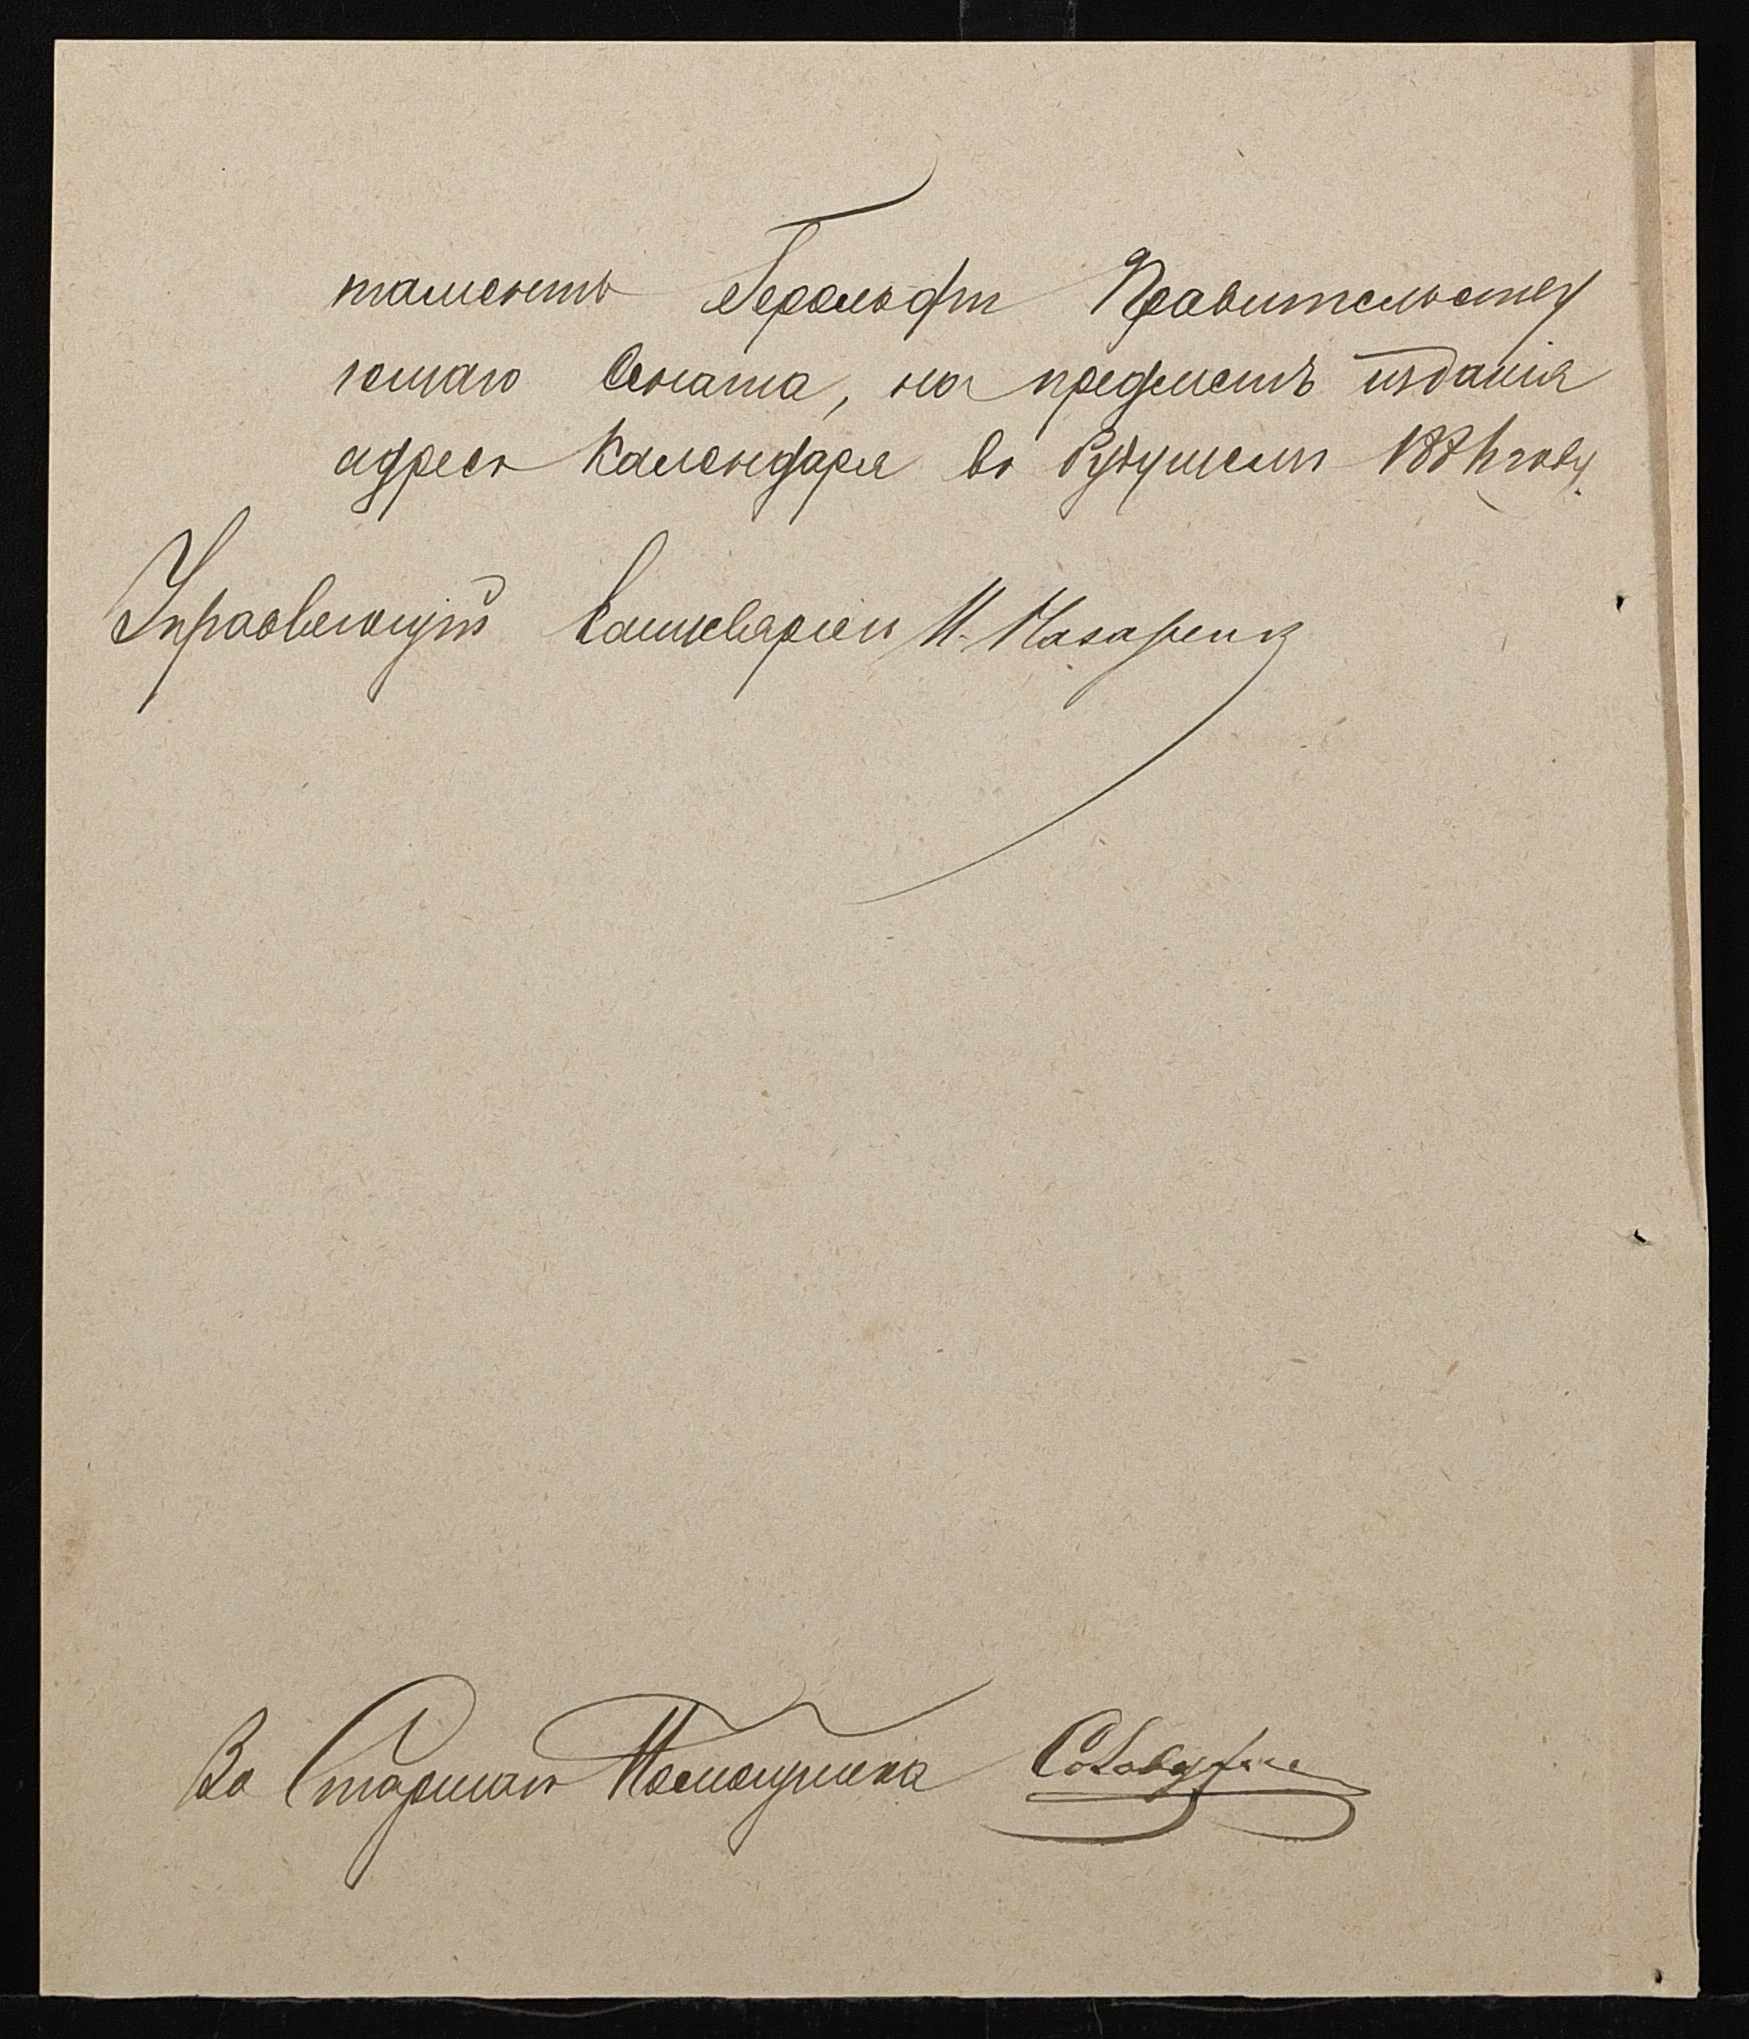 таментъ Герольдіи Правительству
ющаго Сената, на предметъ изданія
адресъ Календаря въ будущемъ году
Управляющій Канцеляріею И. Назаренк
За Старшаго Помощника